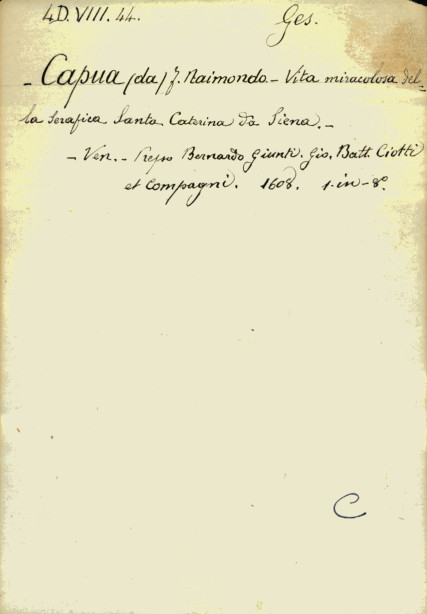 4D.VIII.44. Ges.
- Capua (da) f. Raimondo - Vita miracolosa del-
la serafica Santa Caterina da Siena. -
- Ven. - Presso Bernardo Giunti. Gio. Batt. Ciotti
et Compagni. 1608. 1. in-8º.
C